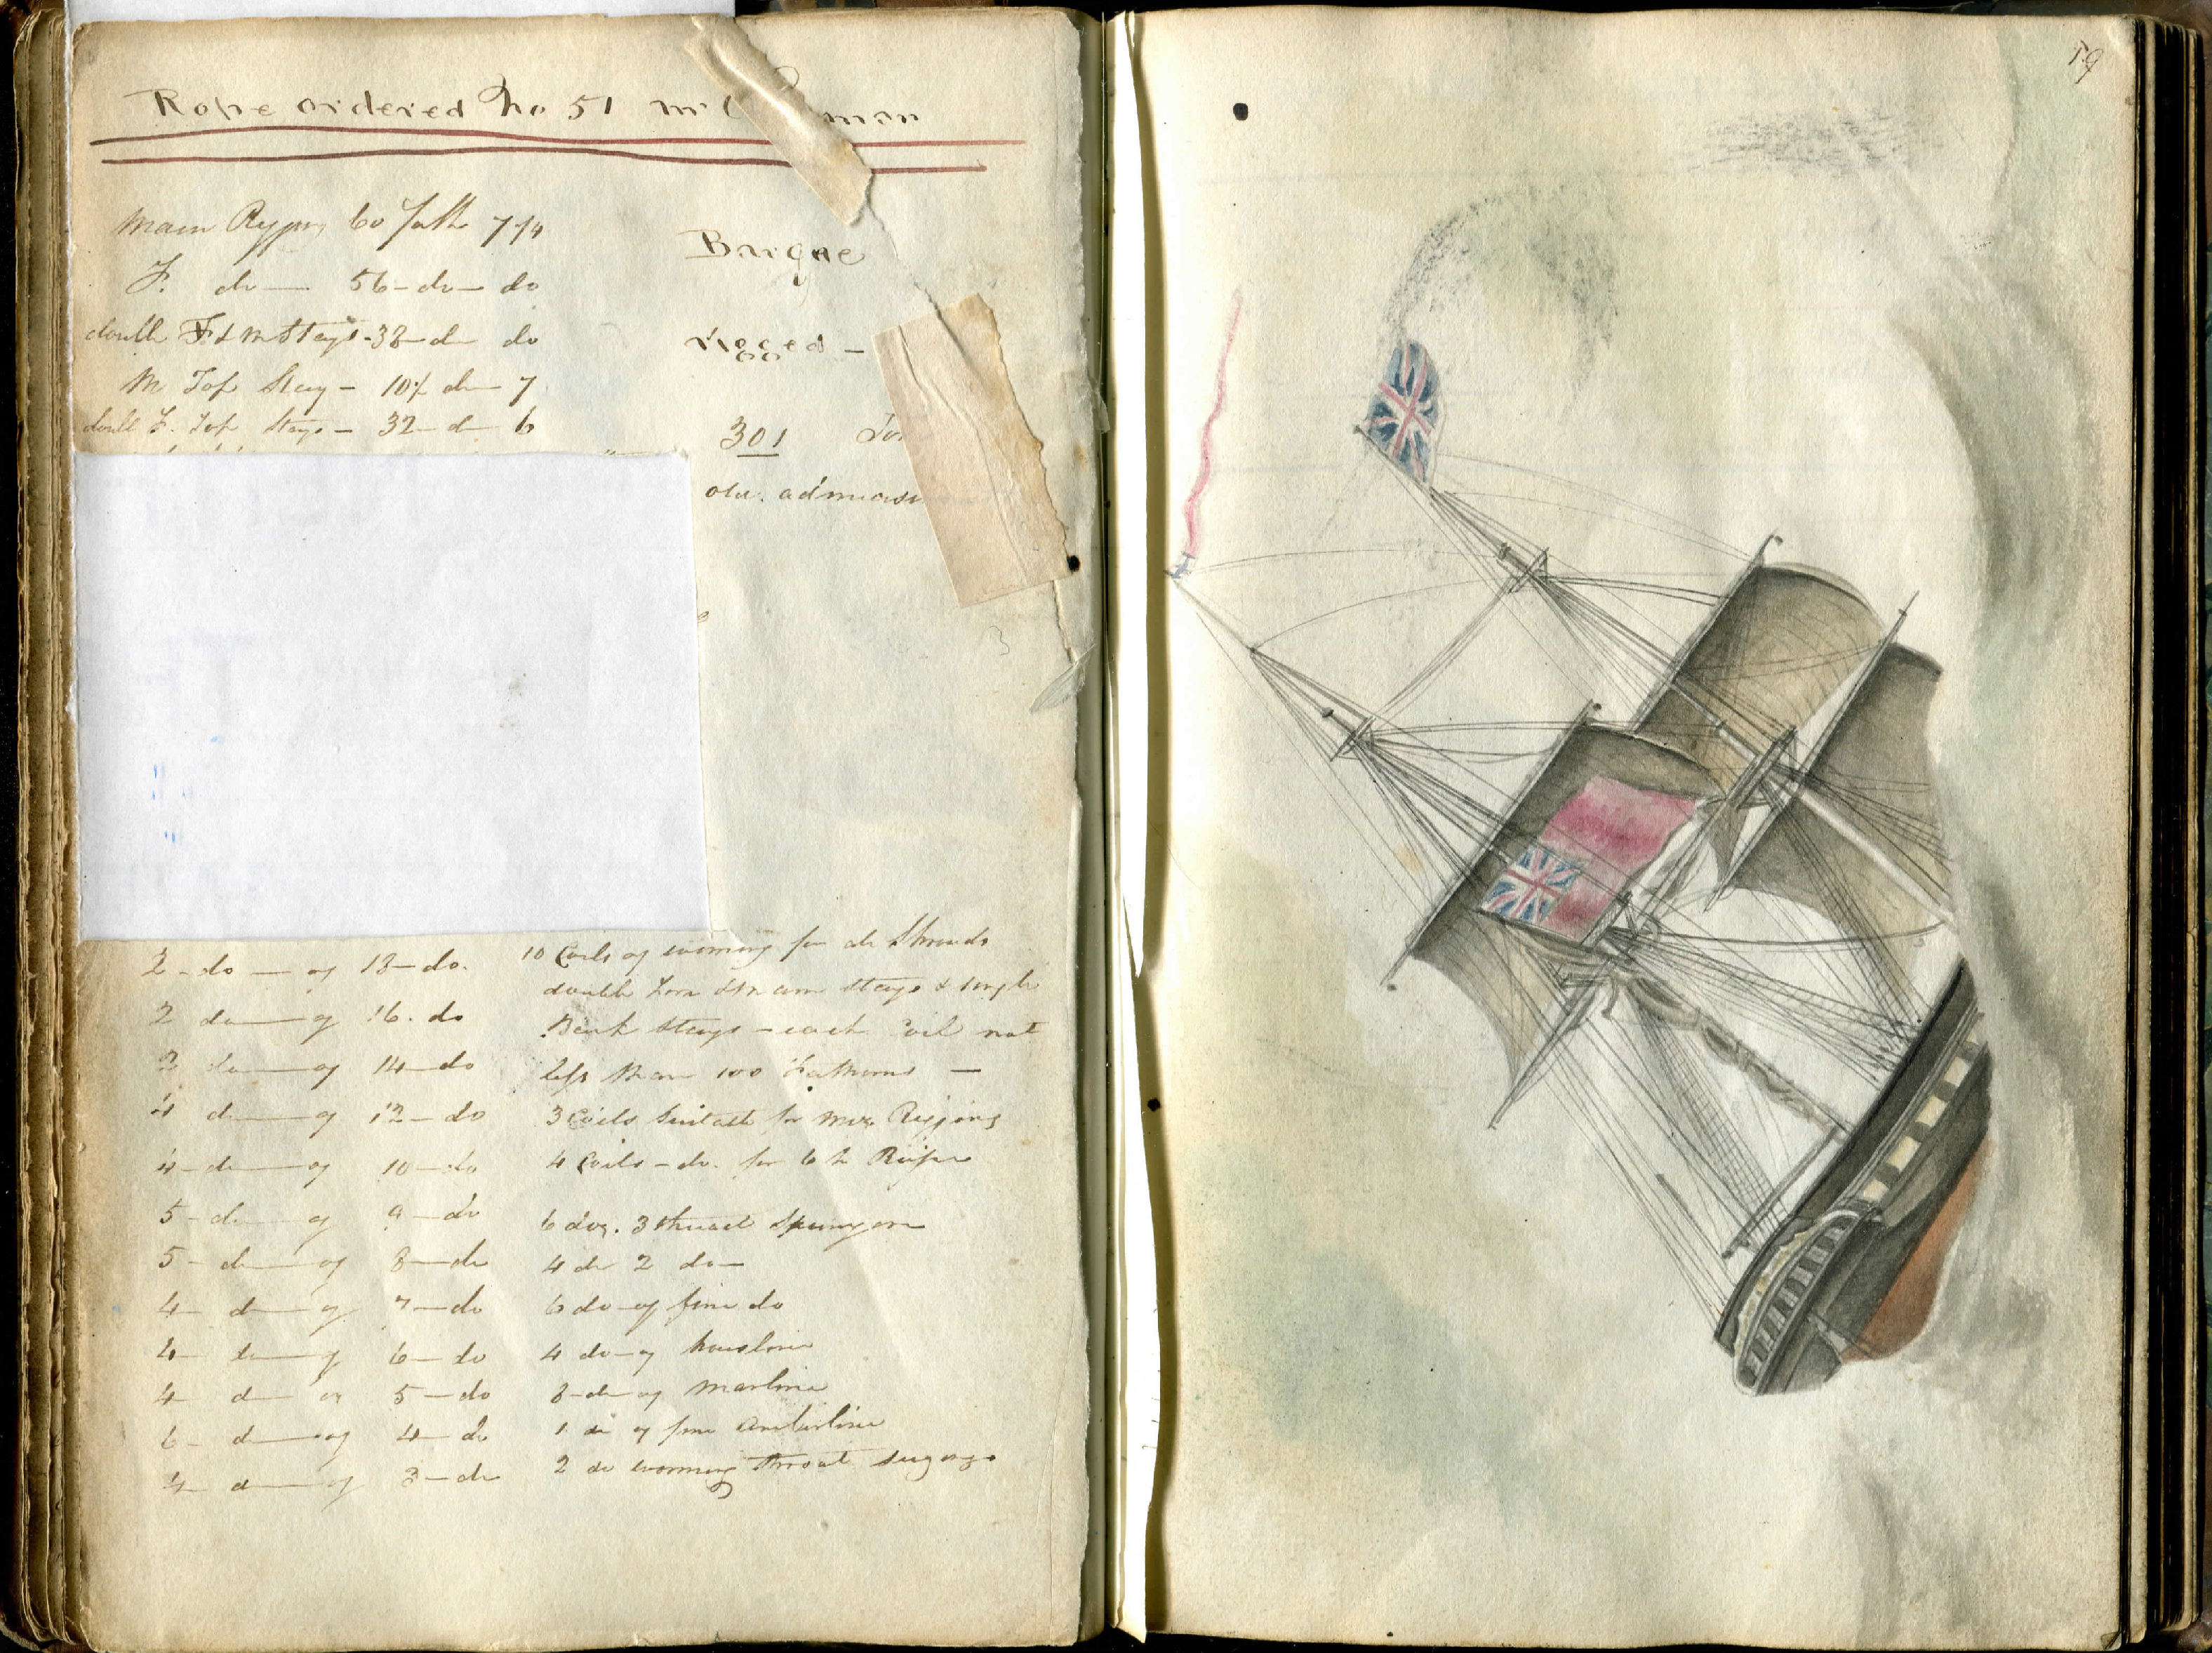 Rope ordered No 51 Mr C mon
Main Rigging 60 Fath 7 1/4
F. do — 56 - do - do
double F & M Stays - 38 - do do
M Top Stay - 10 1/2 do - 7
doubl F. Top Stays - 32 - do 6
Barque
rigged -
301 Ton
old. admeas
2 - do — of 18 - do.
2 do — of 16. do
2 do — of 14 - do
4 do — of 12 - do
4 - do — of 10 - do
5 - do — of 9 - do
5 - do — of 8 - do
4 - do — of 7 - do
4 - do — of 6 - do
4 - do — of 5 - do
6 - do — of 4 - do
4 - do — of 3 - do
10 Coils of worming for do Shrouds
double Fore & Main stays & single
Back Stays - each Coil not
less than 100 Fathoms —
3 Coils Suitabl for Miz. Rigging
4 Coils - do. for 6 In Rope
6 doz. 3 thread Spunyarn
4 do 2 do —
6 do - of fine do
4 do - of housline
8 - do - of marline
1 do of fine amberline
2 do worming throat
59